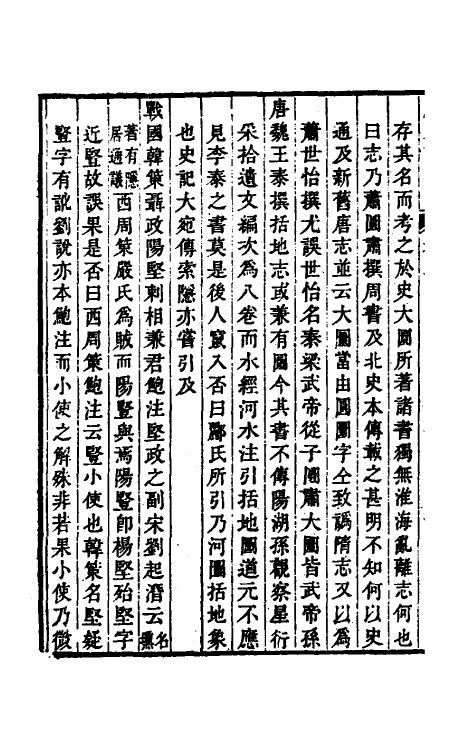 存其名而考之於史大圜所著諸書獨無淮海亂離志何也
曰志乃蕭圓肅撰周書及北史本傳載之甚明不知何以史
通及新舊唐志並云大圜當由圓圜字仝致譌隋志又以爲
蕭世怡撰尤誤世怡名泰梁武帝從子圓肅大圜皆武帝孫
唐魏王泰撰括地志或兼有圖今其書不傳陽湖孫觀察星衍
采拾遺文編次爲八卷而水經河水注引括地圖道元不應
見李泰之書莫是後人竄入否曰酈氏所引乃河圖括地象
也史記大宛傳索隱亦嘗引及
戰國韓策聶政陽堅刺相兼君鮑注堅政之副宋劉起潛云名壎
著有隱居通議西周策嚴氏爲賊而陽豎與焉陽豎卽楊堅殆堅字
近豎故誤果是否曰西周策鮑注云豎小使也韓策名堅疑
豎字有訛劉說亦本鮑注而小使之解殊非若果小使乃微